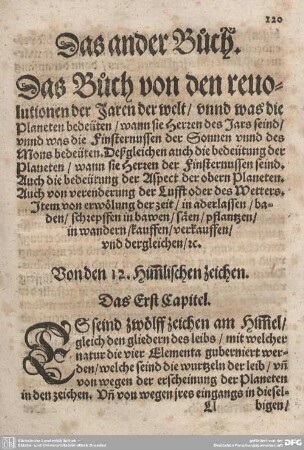 120
Das ander Bůch.
Das Bůch von den reuo-
lutionen der Jaren der welt / vnnd was die
Planeten bedeüten / wann sie Herren des Jars seind /
vnnd was die Finsternussen der Sonnen vnnd des
Mons bedeüten. Deßgleichen auch die bedeütung der
Planeten / wann sie Herren der Finsternussen seind.
Auch die bedeütung der Aspect der obern Planeten.
Auch von verenderung der Lufft oder des Wetters.
Item von erwölung der zeit / in aderlassen / ba-
den / schrepffen in bawen / säen / pflantzen /
in wandern / kauffen / verkauffen /
vnd dergleichen / ⁊c.
Von den 12. Him̃lischen zeichen.
Das Erst Capitel.
ES seind zwölff zeichen am Him̃el /
gleich den gliedern des leibs / mit welcher
natur die vier Elementa guberniert wer-
den / welche seind die wurtzeln der leib / vñ
von wegen der erscheinung der Planeten
in den zeichen. Vñ von wegen jres eingangs in diesel-
Ll bigen /